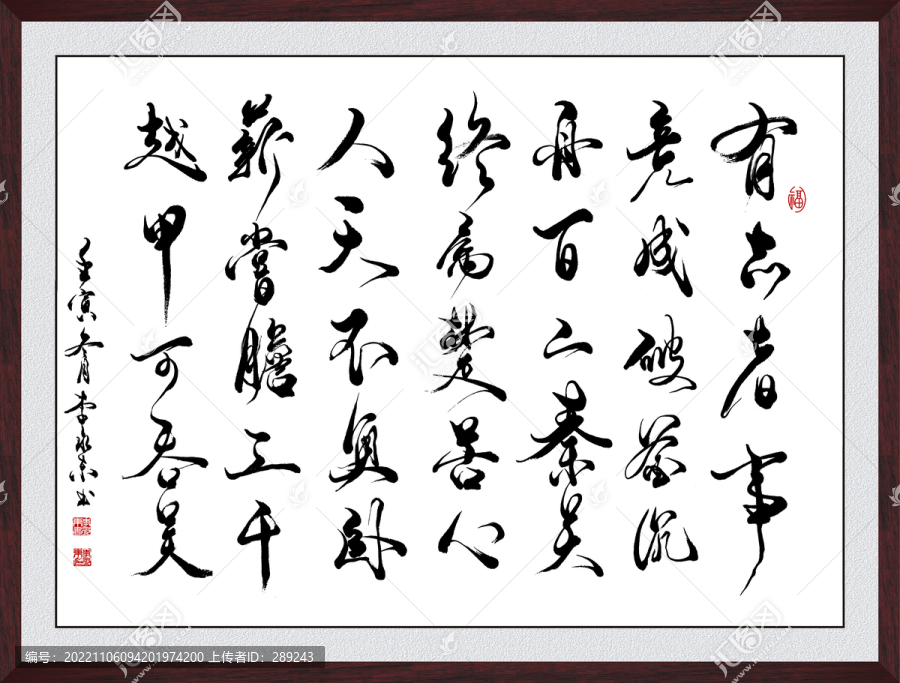 有志者事
竟成破釜沉
舟百二秦关
终属楚苦心
人天不负卧
薪嘗膽三千
越甲可吞吴
壬寅冬月李书
福
编号：20221106094201974200 上传者ID：289243
汇图网